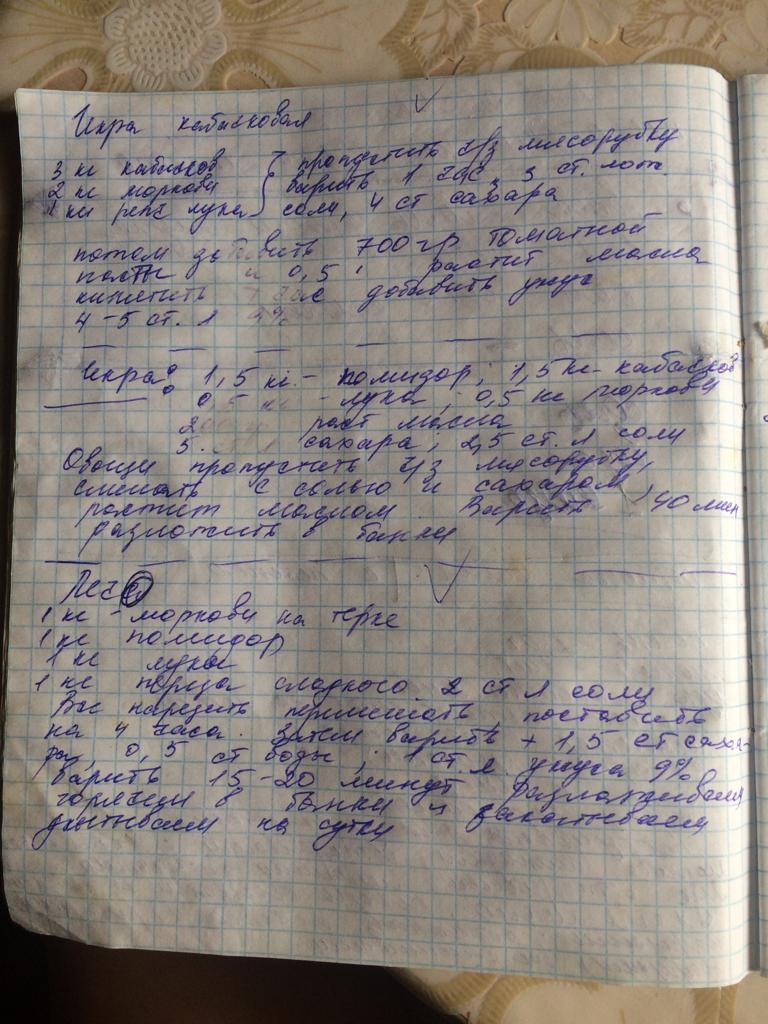 Икра кабачковая
3 кг кабачков } пропустить ч/з мясорубку
2 кг моркови } варить 1 час, 3 ст. лож.
1 кг репч лука } соли, 4 ст сахара
потом добавить 700 гр томатной
пасты и 0,5 растит масла
кипятить час добавить уксус
4-5 ст. л 9%
Икра: 1,5 кг. - помидор; 1,5 кг. кабачков
0,5 кг - лука; 0,5 кг моркови
раст масла
5 сахара; 2,5 ст. л соли
Овощи пропустить ч/з мясорубку,
смешать с солью и сахаром
растит маслом. Варить 40 мин
разложить в банки
1 кг - моркови на терке
1 кг помидор
1 кг лука
1 кг перца сладкого 2 ст л соли
Все нарезать перемешать, поставить
на 4 часа. Затем варить + 1,5 ст саха-
ра, 0,5 ст воды, 1 ст л. уксуса 9%
варить 15-20 минут разлаживаем
горячем в банки и закатываем
укутываем на сутки